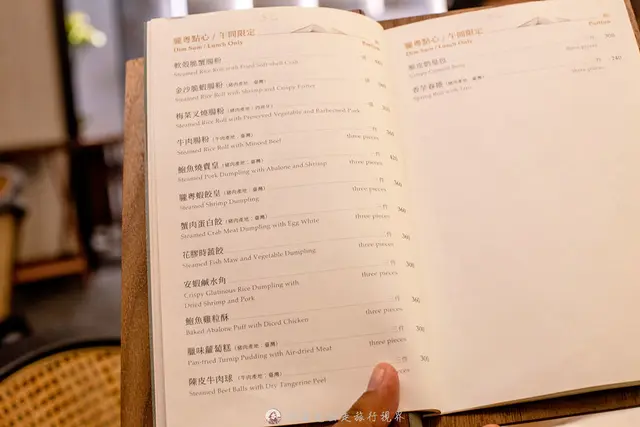 隴粵點心 / 午間限定
Dim Sum / Lunch Only
Portion
軟殼脆蟹腸粉
Steamed Rice Roll with Fried Soft-shell Crab
金沙脆蝦腸粉 (豬肉產地:臺灣)
Steamed Rice Roll with Shrimp and Crispy
梅菜叉燒腸粉
Steamed Rice Roll with Preserved Vegetable and Barbecued Pork
牛肉腸粉
Steamed Rice Roll with Minced Beef
三件
three pieces
鮑魚燒賣皇 (豬肉產地:臺灣)
Steamed Pork Dumpling with Abalone and Shrimp
three pieces
隴粵蝦餃皇 (豬肉產地:臺灣)
Steamed Shrimp Dumpling
three pieces 360
蟹肉蛋白餃 (豬肉產地:臺灣)
Steamed Crab Meat Dumpling with Egg White
three pieces 360
花膠時蔬餃
Steamed Fish Maw and Vegetable Dumpling
three pieces 360
安蝦鹹水角
Crispy Glutinous Rice Dumpling with
Dried Shrimp and Pork
three pieces
鮑魚雞粒酥
Baked Abalone Puff with Diced Chicken
三件 360
three pieces
臘味蘿蔔糕 (豬肉產地:臺灣)
Pan-fried Turnip Pudding with Air-dried Meat
三件
three pieces
陳皮牛肉球 (牛肉產地:臺灣)
Steamed Beef Balls with Dry Tangerine Peel
300
隴粵點心 / 午間限定
Dim Sum / Lunch Only
Portion
Crispy Custard Buns
three pieces
香芋春捲
Spring Roll with Taro
three pieces
走旅行視界